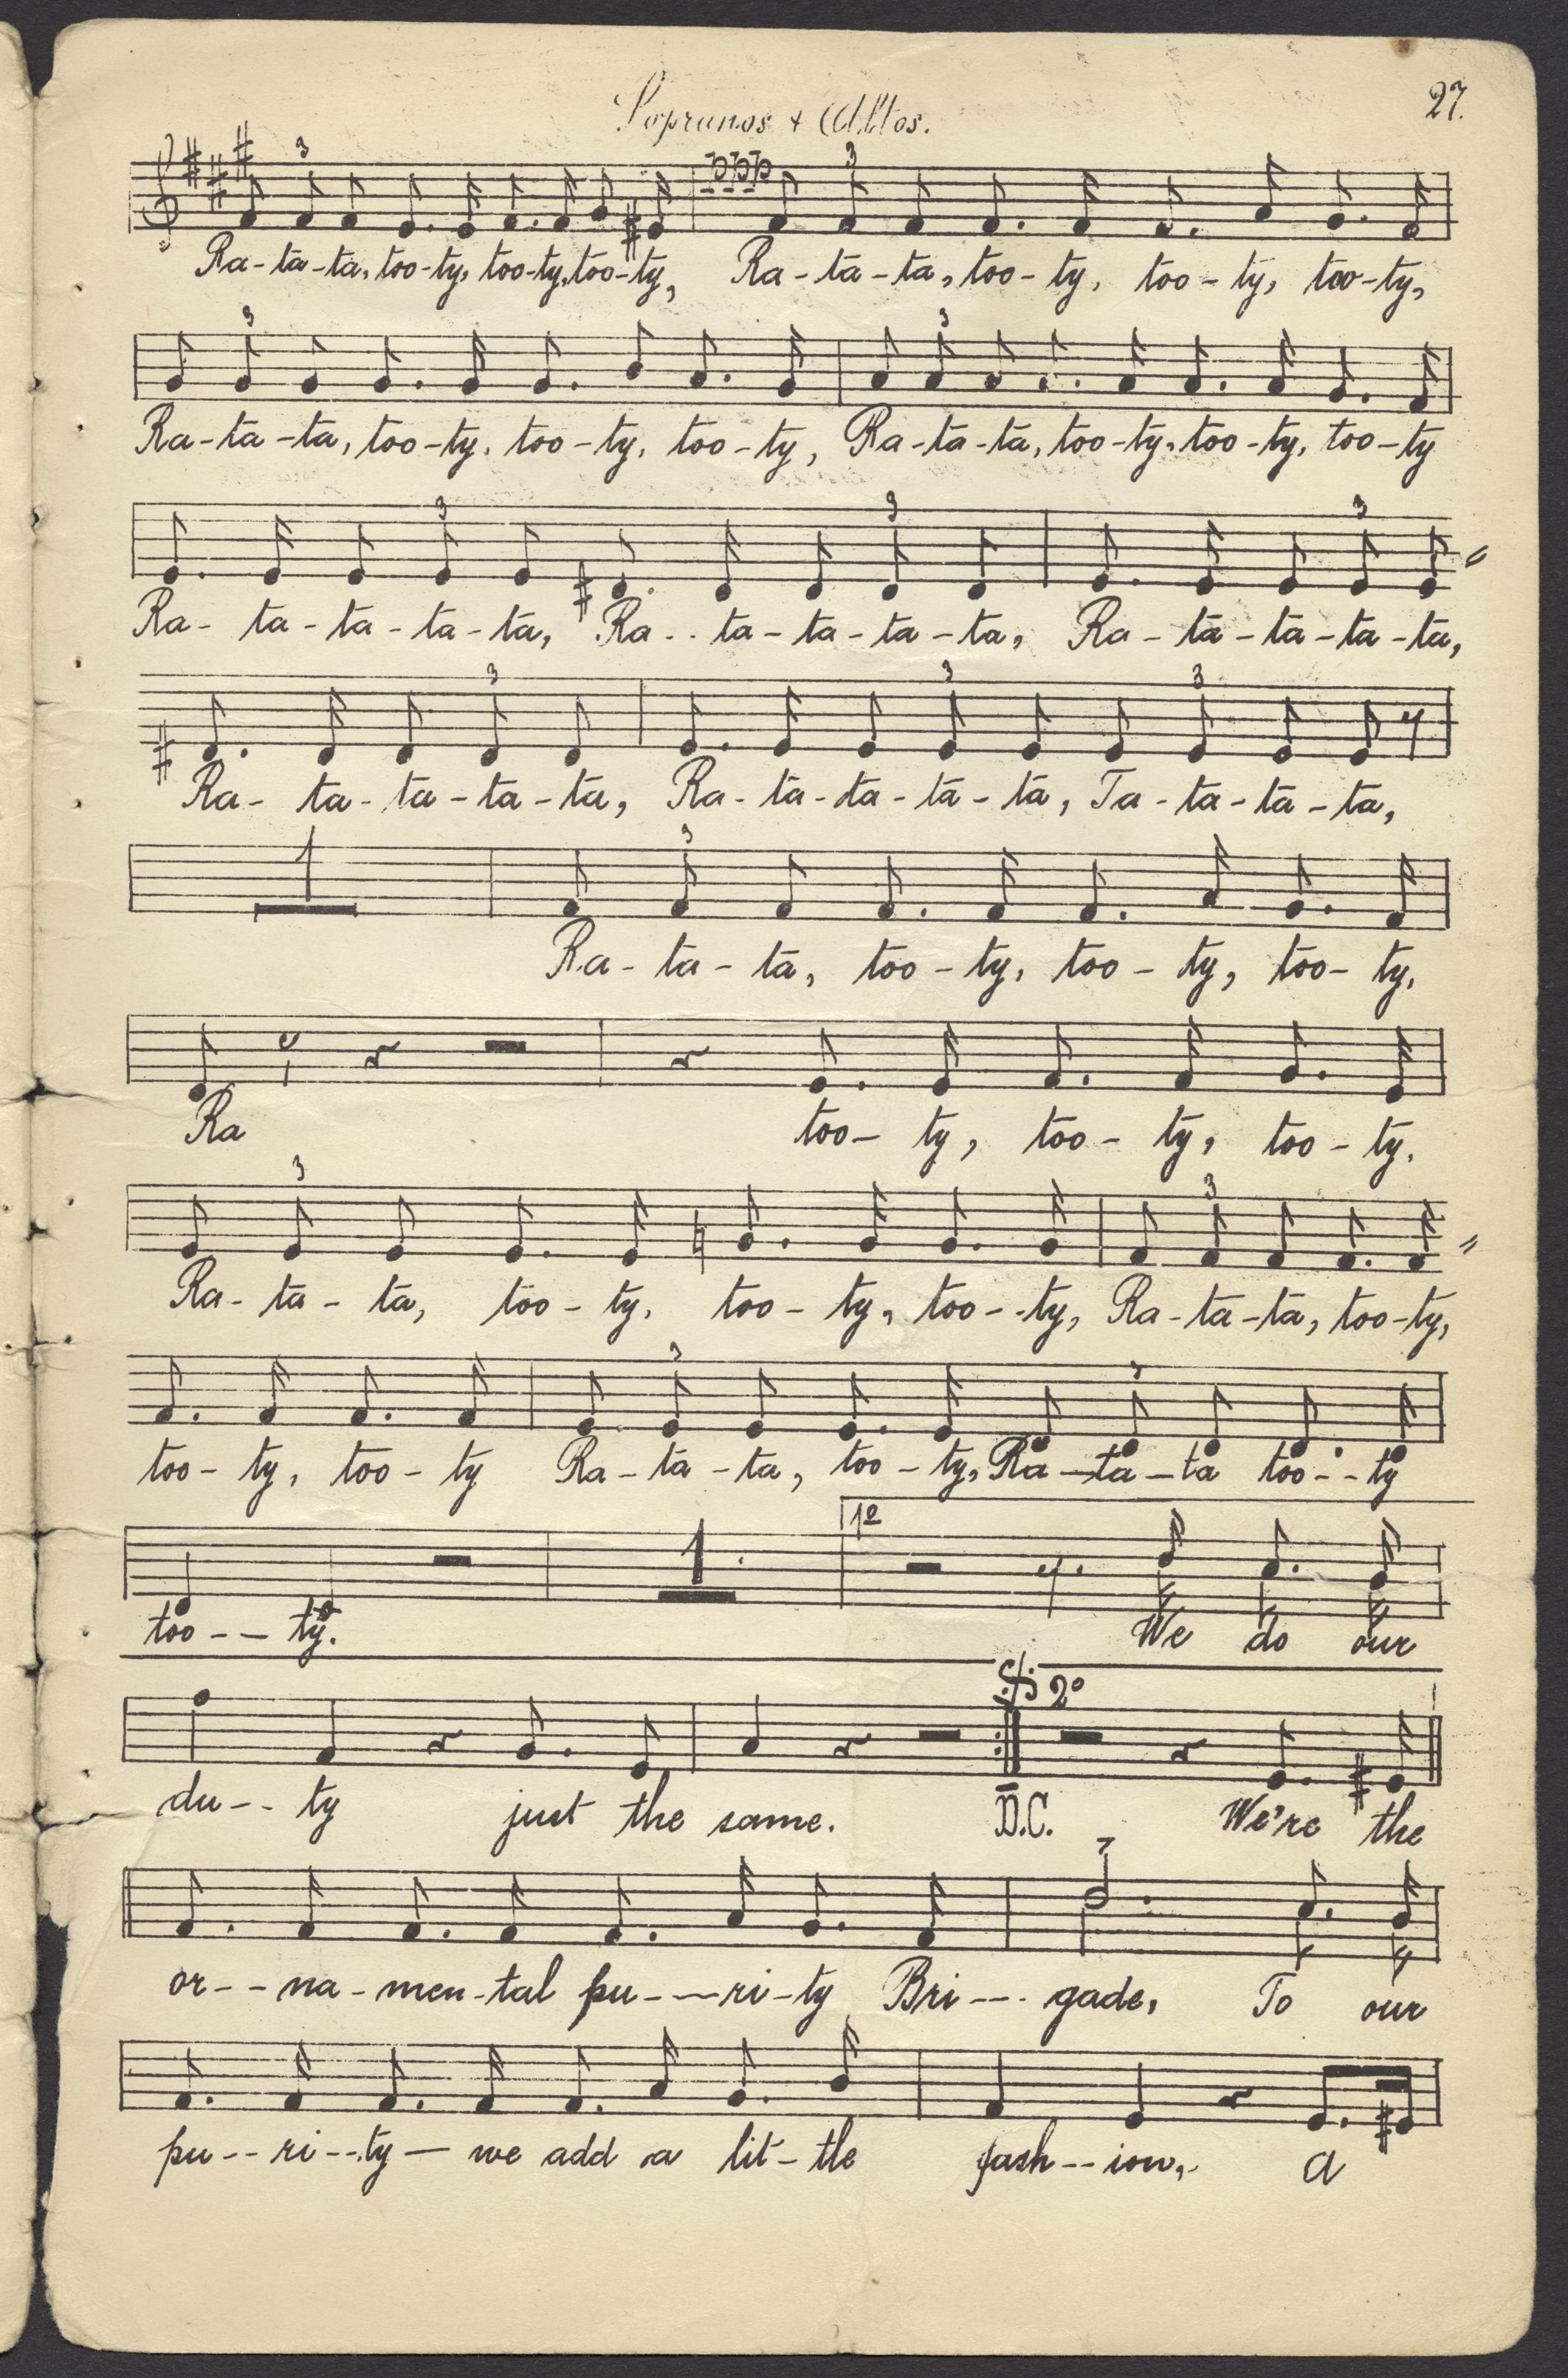 Sopranos + Altos.
27.
3 3
Ra-ta-ta, too-ty, too-ty, too-ty, Ra-ta-ta, too-ty, too-ty, too-ty,
3 3
Ra-ta-ta, too-ty, too-ty, too-ty, Ra-ta-ta, too-ty, too-ty, too-ty
3 3 3
Ra-ta-ta-ta-ta, Ra--ta-ta-ta-ta, Ra-ta-ta-ta-ta,
3 3 3
Ra-ta-ta-ta-ta, Ra-ta-ta-ta-ta, Ta-ta-ta-ta,
1 3
Ra-ta-ta, too-ty, too-ty, too-ty,
Ra too-ty, too-ty, too-ty.
3 3
Ra-ta-ta, too-ty, too-ty, too--ty, Ra-ta-ta, too-ty,
3 3
too-ty, too-ty Ra-ta-ta, too-ty, Ra-ta-ta too--ty
1 1º
too--ty. We do our
2º
du--ty just the same. D.C. We're the
or--na-men-tal pu---ri-ty Bri---gade, To our
pu--ri--ty— we add a lit-tle fash--ion, a